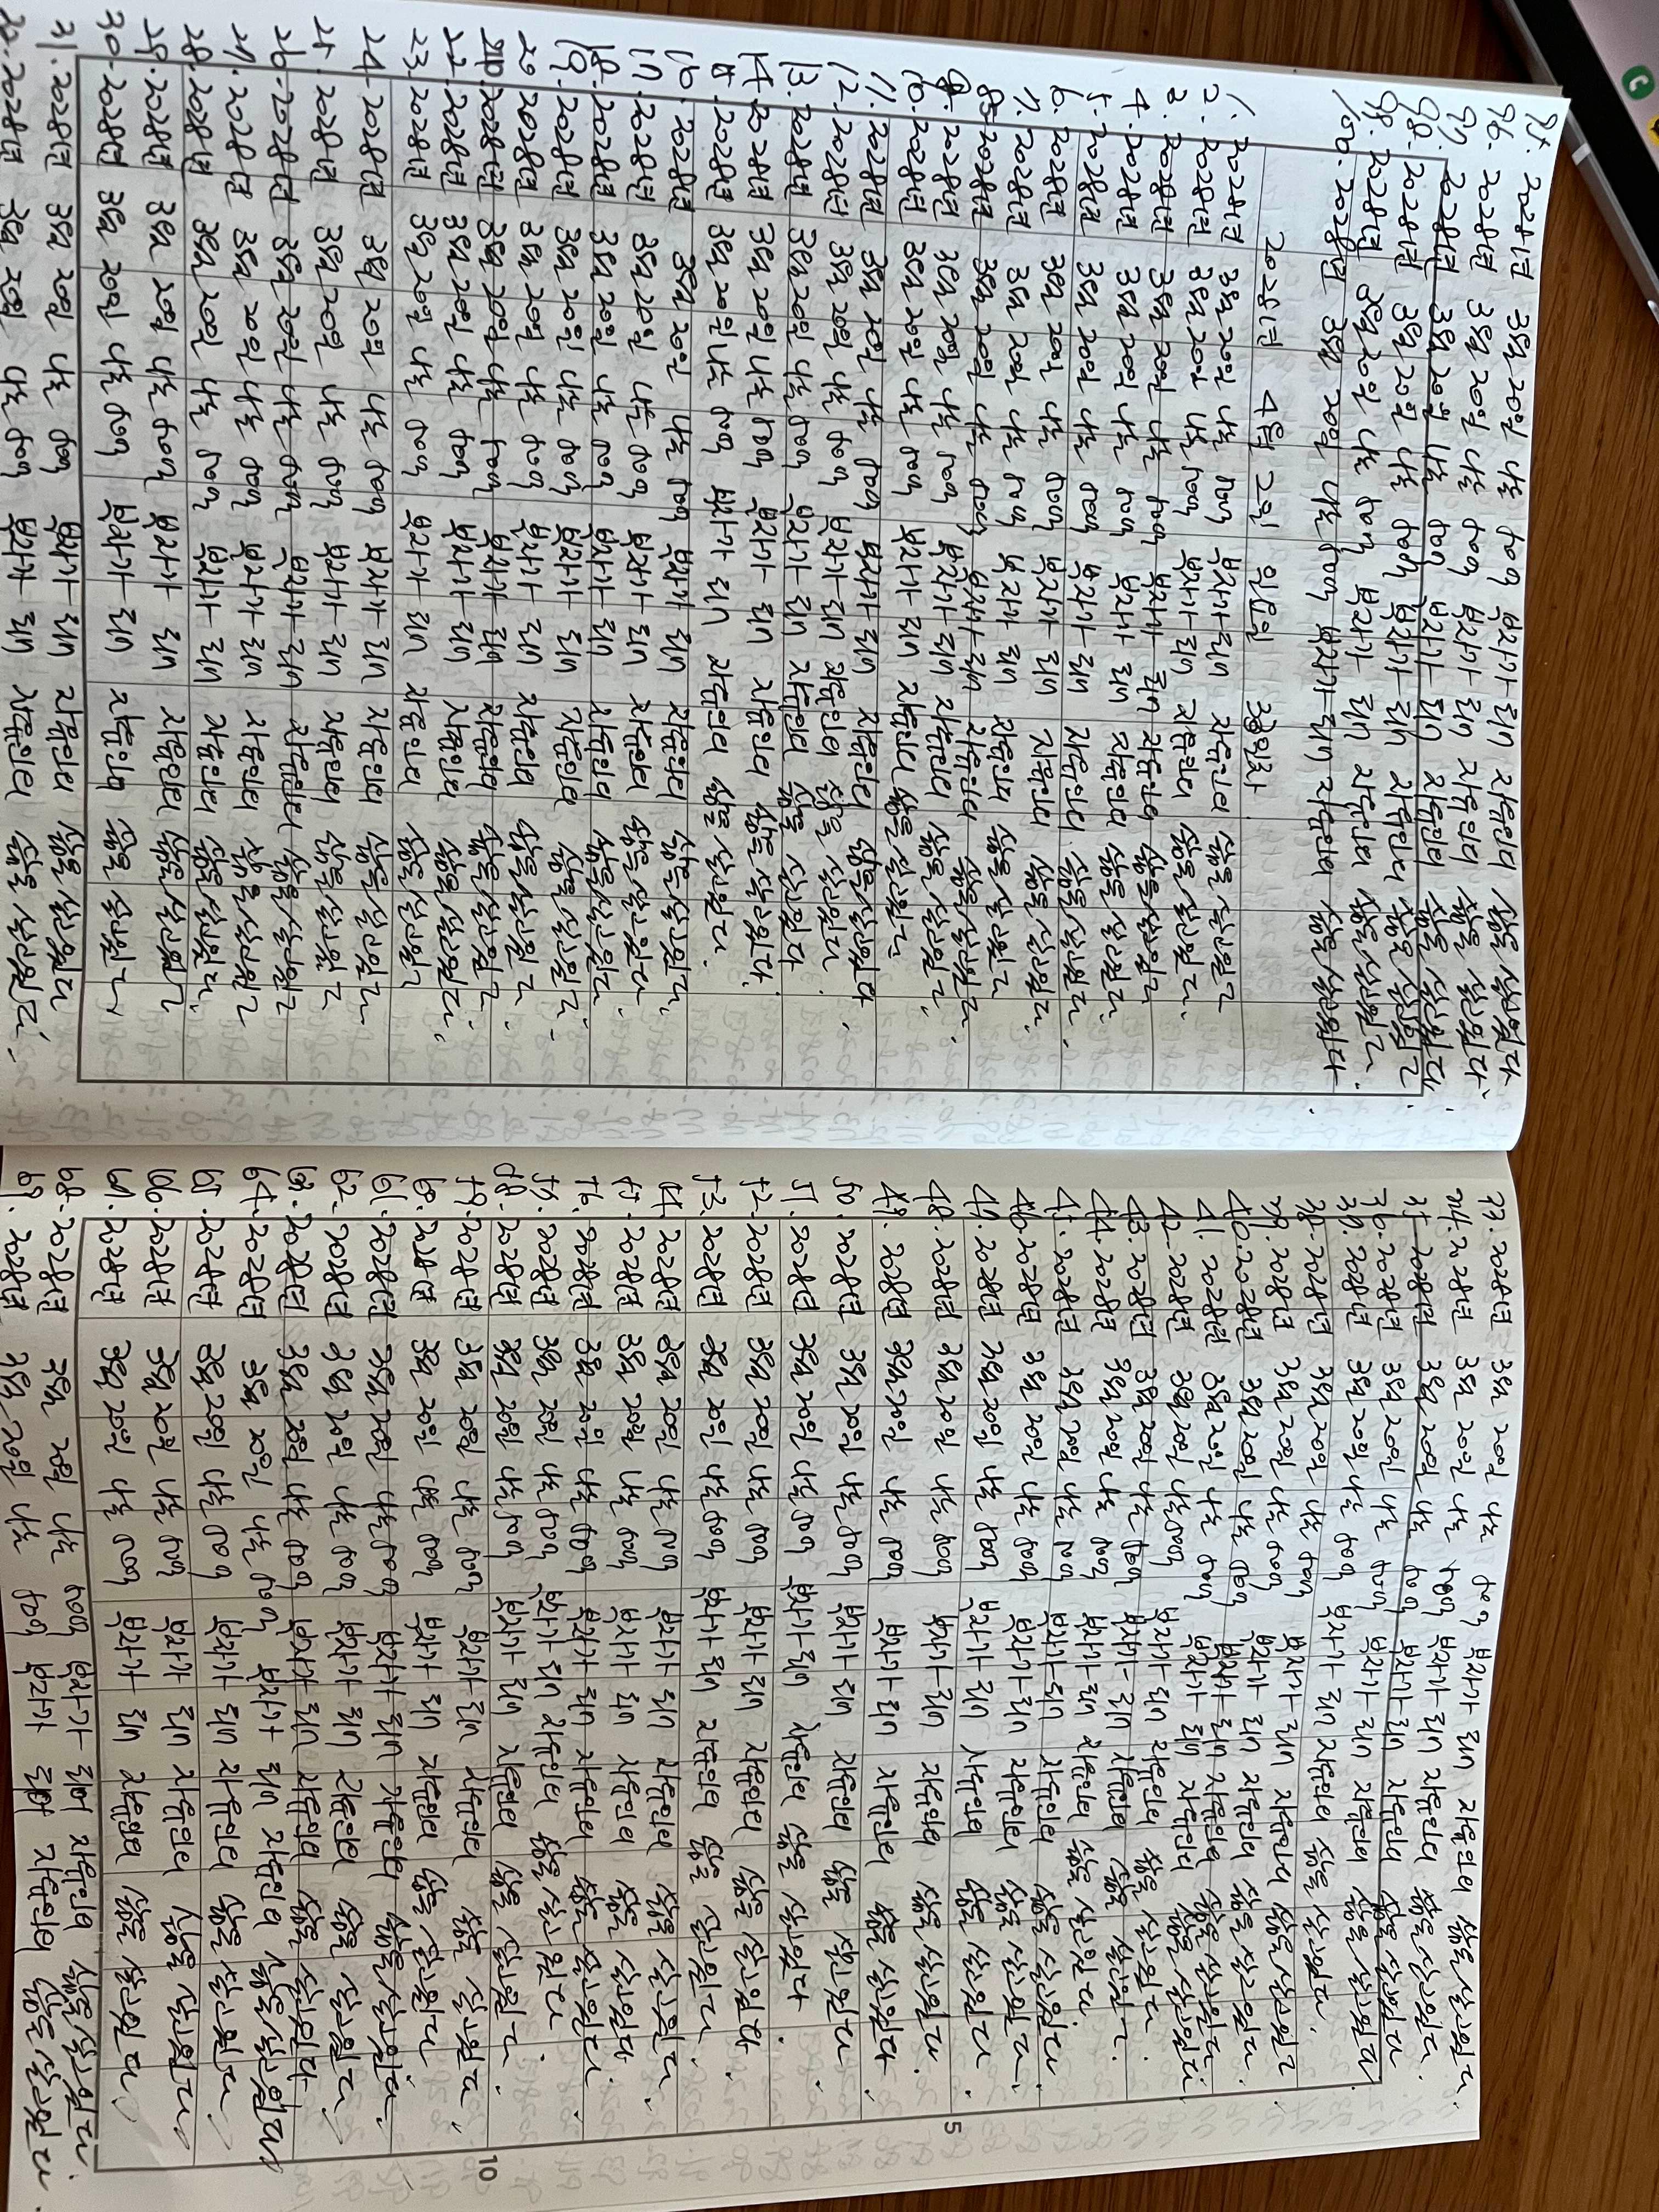 95. 2028년 3월 20일 나는 500억 부자가 되어 자유인의 삶을 살고있다.
96. 2028년 3월 20일 나는 500억 부자가 되어 자유인의 삶을 살고있다.
97. 2028년 3월 20일 나는 500억 부자가 되어 자유인의 삶을 살고있다.
98. 2028년 3월 20일 나는 500억 부자가 되어 자유인의 삶을 살고있다.
99. 2028년 3월 20일 나는 500억 부자가 되어 자유인의 삶을 살고있다.
100. 2028년 3월 20일 나는 500억 부자가 되어 자유인의 삶을 살고있다.
2028년 4월 2일 일요일
1. 2028년 3월 20일 나는 500억 부자가 되어 자유인의 삶을 살고있다
2. 2028년 3월 20일 나는 500억 부자가 되어 자유인의 삶을 살고있다.
3. 2028년 3월 20일 나는 500억 부자가 되어 자유인의 삶을 살고있다.
4. 2028년 3월 20일 나는 500억 부자가 되어 자유인의 삶을 살고있다.
5. 2028년 3월 20일 나는 500억 부자가 되어 자유인의 삶을 살고있다.
6. 2028년 3월 20일 나는 500억 부자가 되어 자유인의 삶을 살고있다.
7. 2028년 3월 20일 나는 500억 부자가 되어 자유인의 삶을 살고있다.
8. 2028년 3월 20일 나는 500억 부자가 되어 자유인의 삶을 살고있다.
9. 2028년 3월 20일 나는 500억 부자가 되어 자유인의 삶을 살고있다.
10. 2028년 3월 20일 나는 500억 부자가 되어 자유인의 삶을 살고있다.
11. 2028년 3월 20일 나는 500억 부자가 되어 자유인의 삶을 살고있다
12. 2028년 3월 20일 나는 500억 부자가 되어 자유인의 삶을 살고있다.
13. 2028년 3월 20일 나는 500억 부자가 되어 자유인의 삶을 살고있다
14. 2028년 3월 20일 나는 500억 부자가 되어 자유인의 삶을 살고있다.
15. 2028년 3월 20일 나는 500억 부자가 되어 자유인의 삶을 살고있다.
16. 2028년 3월 20일 나는 500억 부자가 되어 자유인의 삶을 살고있다.
17. 2028년 3월 20일 나는 500억 부자가 되어 자유인의 삶을 살고있다.
18. 2028년 3월 20일 나는 500억 부자가 되어 자유인의 삶을 살고있다.
19. 2028년 3월 20일 나는 500억 부자가 되어 자유인의 삶을 살고있다.
20. 2028년 3월 20일 나는 500억 부자가 되어 자유인의 삶을 살고있다.
21. 2028년 3월 20일 나는 500억 부자가 되어 자유인의 삶을 살고있다.
22. 2028년 3월 20일 나는 500억 부자가 되어 자유인의 삶을 살고있다.
23. 2028년 3월 20일 나는 500억 부자가 되어 자유인의 삶을 살고있다
24. 2028년 3월 20일 나는 500억 부자가 되어 자유인의 삶을 살고있다
25. 2028년 3월 20일 나는 500억 부자가 되어 자유인의 삶을 살고있다
26. 2028년 3월 20일 나는 500억 부자가 되어 자유인의 삶을 살고있다
27. 2028년 3월 20일 나는 500억 부자가 되어 자유인의 삶을 살고있다
28. 2028년 3월 20일 나는 500억 부자가 되어 자유인의 삶을 살고있다.
29. 2028년 3월 20일 나는 500억 부자가 되어 자유인의 삶을 살고있다
30. 2028년 3월 20일 나는 500억 부자가 되어 자유인의 삶을 살고있다
31. 2028년 3월 20일 나는 500억 부자가 되어 자유인의 삶을 살고있다
32. 2028년 3월 20일 나는 500억 부자가 되어 자유인의 삶을 살고있다.
33. 2028년 3월 20일 나는 500억 부자가 되어 자유인의 삶을 살고있다.
34. 2028년 3월 20일 나는 500억 부자가 되어 자유인의 삶을 살고있다.
35. 2028년 3월 20일 나는 500억 부자가 되어 자유인의 삶을 살고있다.
36. 2028년 3월 20일 나는 500억 부자가 되어 자유인의 삶을 살고있다.
37. 2028년 3월 20일 나는 500억 부자가 되어 자유인의 삶을 살고있다.
38. 2028년 3월 20일 나는 500억 부자가 되어 자유인의 삶을 살고있다.
39. 2028년 3월 20일 나는 500억 부자가 되어 자유인의 삶을 살고있다
40. 2028년 3월 20일 나는 500억 부자가 되어 자유인의 삶을 살고있다.
41. 2028년 3월 20일 나는 500억 부자가 되어 자유인의 삶을 살고있다.
42. 2028년 3월 20일 나는 500억 부자가 되어 자유인의 삶을 살고있다.
43. 2028년 3월 20일 나는 500억 부자가 되어 자유인의 삶을 살고있다.
44. 2028년 3월 20일 나는 500억 부자가 되어 자유인의 삶을 살고있다.
45. 2028년 3월 20일 나는 500억 부자가 되어 자유인의 삶을 살고있다.
46. 2028년 3월 20일 나는 500억 부자가 되어 자유인의 삶을 살고있다.
47. 2028년 3월 20일 나는 500억 부자가 되어 자유인의 삶을 살고있다.
48. 2028년 3월 20일 나는 500억 부자가 되어 자유인의 삶을 살고있다.
49. 2028년 3월 20일 나는 500억 부자가 되어 자유인의 삶을 살고있다.
50. 2028년 3월 20일 나는 500억 부자가 되어 자유인의 삶을 살고있다.
51. 2028년 3월 20일 나는 500억 부자가 되어 자유인의 삶을 살고있다.
52. 2028년 3월 20일 나는 500억 부자가 되어 자유인의 삶을 살고있다.
53. 2028년 3월 20일 나는 500억 부자가 되어 자유인의 삶을 살고있다.
54. 2028년 3월 20일 나는 500억 부자가 되어 자유인의 삶을 살고있다.
55. 2028년 3월 20일 나는 500억 부자가 되어 자유인의 삶을 살고있다
56. 2028년 3월 20일 나는 500억 부자가 되어 자유인의 삶을 살고있다.
57. 2028년 3월 20일 나는 500억 부자가 되어 자유인의 삶을 살고있다.
58. 2028년 3월 20일 나는 500억 부자가 되어 자유인의 삶을 살고있다.
59. 2028년 3월 20일 나는 500억 부자가 되어 자유인의 삶을 살고있다.
60. 2028년 3월 20일 나는 500억 부자가 되어 자유인의 삶을 살고있다.
61. 2028년 3월 20일 나는 500억 부자가 되어 자유인의 삶을 살고있다.
62. 2028년 3월 20일 나는 500억 부자가 되어 자유인의 삶을 살고있다.
63. 2028년 3월 20일 나는 500억 부자가 되어 자유인의 삶을 살고있다
64. 2028년 3월 20일 나는 500억 부자가 되어 자유인의 삶을 살고있다
65. 2028년 3월 20일 나는 500억 부자가 되어 자유인의 삶을 살고있다
66. 2028년 3월 20일 나는 500억 부자가 되어 자유인의 삶을 살고있다
67. 2028년 3월 20일 나는 500억 부자가 되어 자유인의 삶을 살고있다.
68. 2028년 3월 20일 나는 500억 부자가 되어 자유인의 삶을 살고있다.
69. 2028년 3월 20일 나는 500억 부자가 되어 자유인의 삶을 살고있다.
5
10